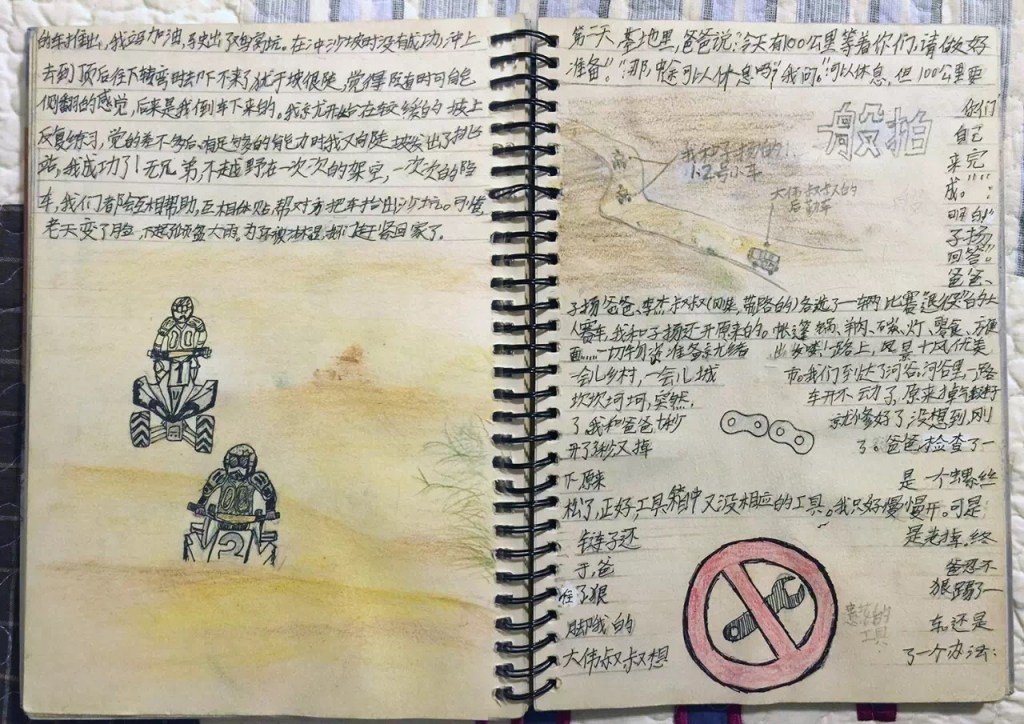 的车推出,我站加油,终出了鸡窝坑。在冲沙坡时没有成功,冲上
去到顶后往下转弯时却下不来了犹于坡很陡,觉得随时可自己
侧翻的感觉,后来是我倒车下来的。我就开始在较缓的坡上
反复练习,觉的差不多后,有足够的能力时我又向陡坡发出了挑
战,我成功了!无兄弟,不越野在一次次的架空,一次次的陷
车,我们都会互相帮助,互相体贴帮对方把车抬出沙坑。可惜,
老天变了脸,下起了倾盆大雨。为不被淋湿,我们赶紧回家了。
1
2
第二天,基地里,爸爸说:“今天有100公里等着你们,请做好
准备。”“那,中途可以休息吗?”我问。“可以休息,但100公里要
你们
自己
来完
成。”
“明白”
子扬
回答”
爸爸、
航拍
我和子扬的1
小2号小车
大伟叔叔的
后勤车
子扬爸爸、李杰叔叔(带路的)各选了一辆比赛退役的
人赛车,我和子扬还开原来的。帐篷、锅、羊肉、碳、灯、零食、方便
面……一切物资准备就绪 出发喽!一路上,风景十风优美
一会儿乡村,一会儿城 市。我们到达了河谷,河谷里一路
坎坎坷坷,突然, 车开不动了,原来掉
了,我和爸爸 就修好了,没想到,刚
开了 又掉 了。爸爸检查了一
下原来 是一个螺丝
松了,正好工具箱中又没相应的工具。我只好慢慢开。可是
链子还 是老掉,终
于,爸 爸忍不
住了狠 狠踢了一
脚我的 车,还是
大伟叔叔想 了一个办法:
工具